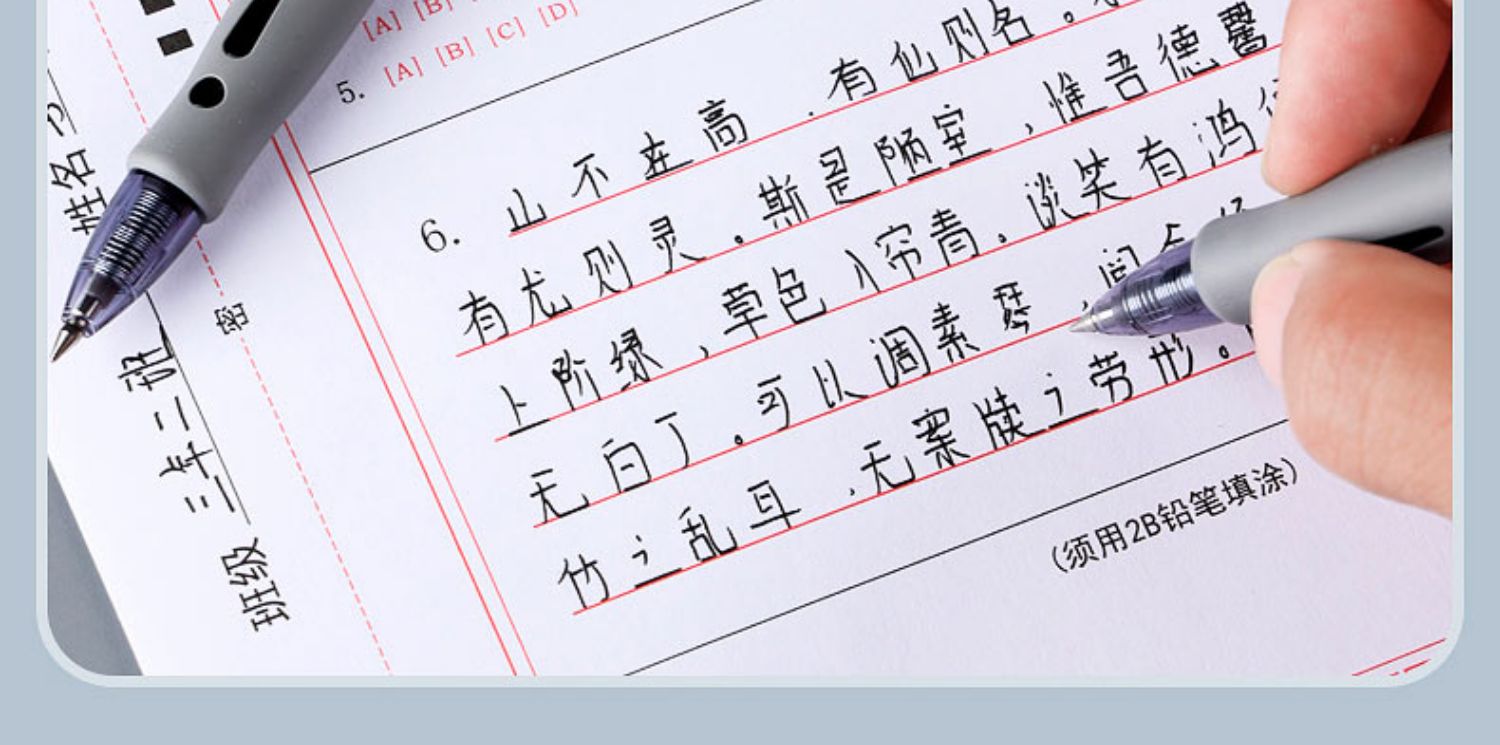 [A] [B]
5. [A] [B] [C] [D]
6. 山不在高，有仙则名。
有龙则灵。斯是陋室，惟吾德馨
上阶绿，草色入帘青。谈笑有鸿
无白丁。可以调素琴，阅金经
竹之乱耳，无案牍之劳形。
(须用2B铅笔填涂)
姓名
密
班级 三年二班